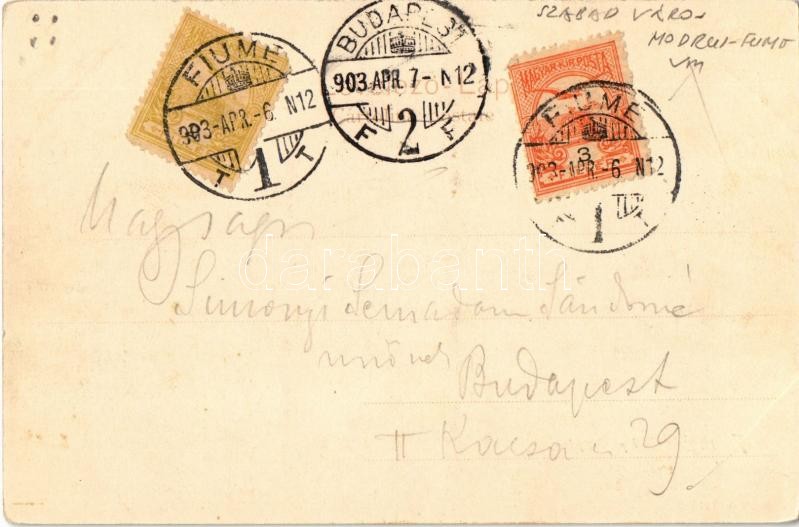 SZABAD VÁROS
MODRUS-FIUME
VM
FIUME
903-APR.-6 N12
T 1 T
BUDAPEST
903 APR. 7- N12
F 2 F
MAGYAR KIR. POSTA
3
FIUME
903-APR.-6 N12
1 T
Levelező-Lap
Nagyságos
Simonyi Semadam Sándorné
úrnőnek
Budapest
II Kacsa u. 29
darabanth